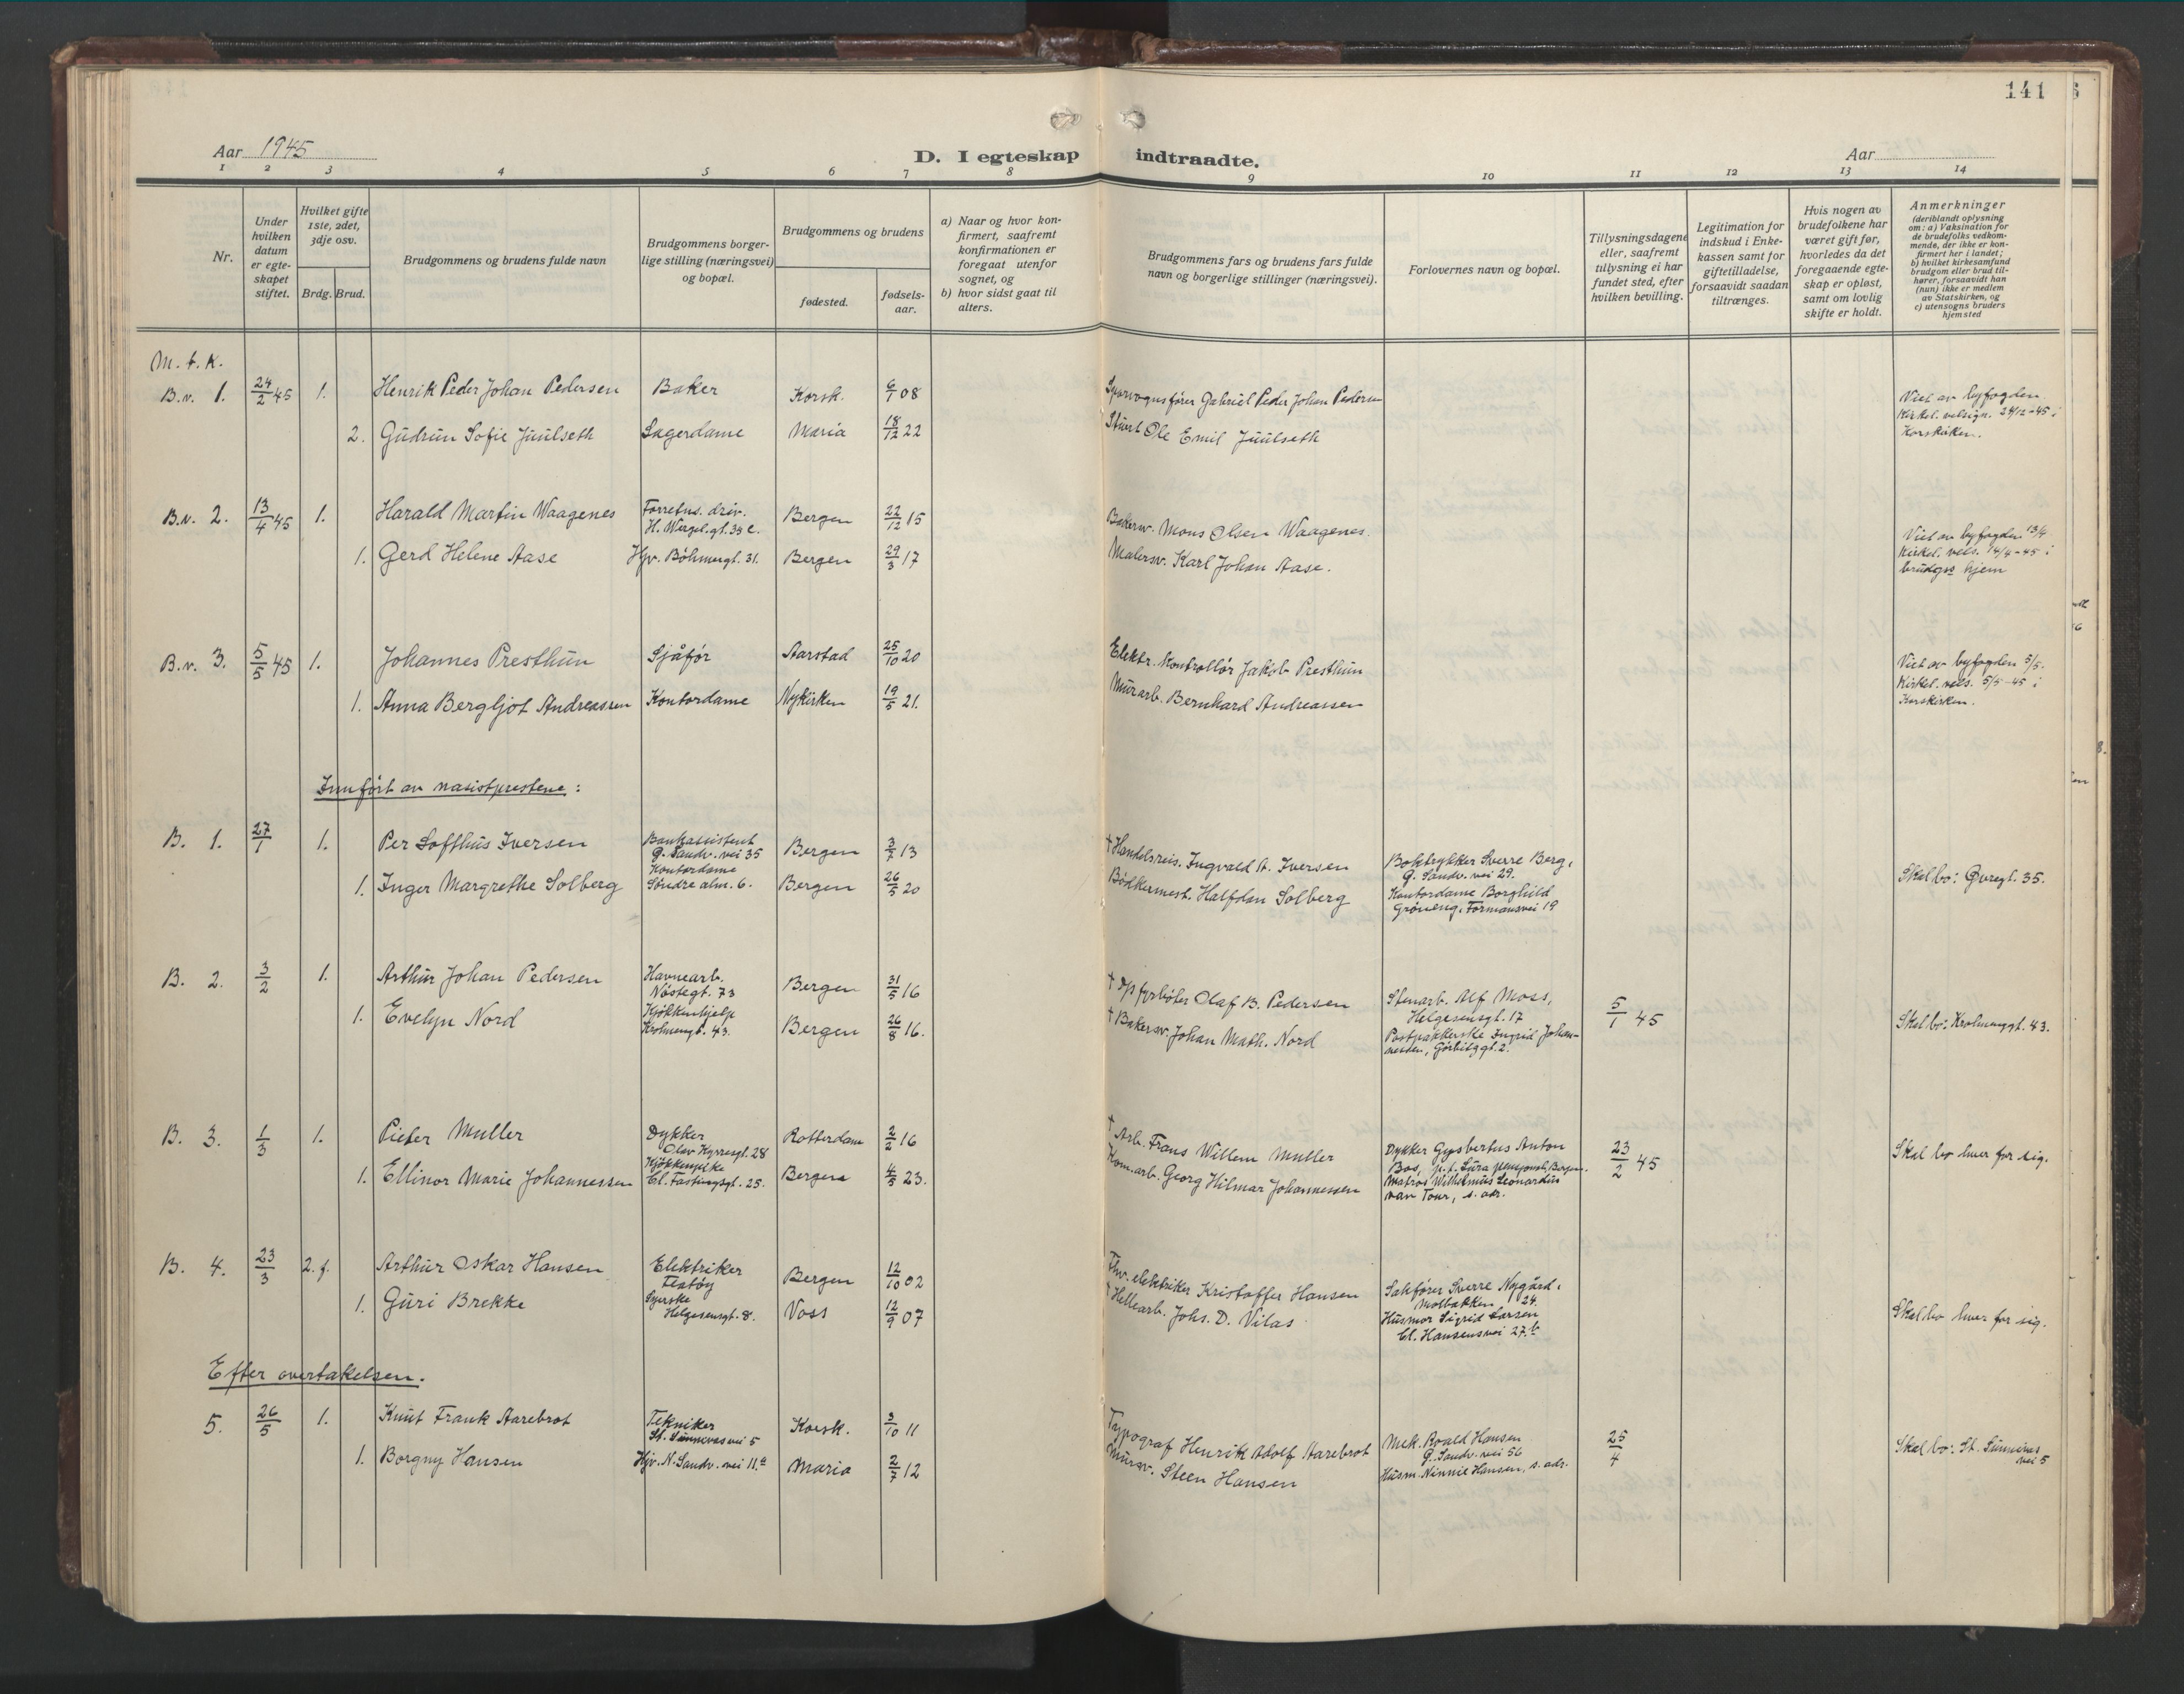 141
Aar 1945
D. I egteskap indtraadte.
Aar
1 2 3 4 5 6 7 8 9 10 11 12 13 14
Nr.
Under hvilken datum er egte-skapet stiftet.
Hvilket gifte 1ste, 2det, 3dje osv.
Brdg. Brud.
Brudgommens og brudens fulde navn
Brudgommens borger-lige stilling (næringsvei) og bopæl.
Brudgommens og brudens
fødested.
fødsels-aar.
a) Naar og hvor kon-firmert, saafremt konfirmationen er foregaat utenfor sognet, og
b) hvor sidst gaat til alters.
Brudgommens fars og brudens fars fulde navn og borgerlige stillinger (næringsvei).
Forlovernes navn og bopæl.
Tillysningsdagene eller, saafremt tillysning ei har fundet sted, efter hvilken bevilling.
Legitimation for indskud i Enke-kassen samt for giftetilladelse, forsaavidt saadan tiltrænges.
Hvis nogen av brudefolkene har været gift før, hvorledes da det foregaaende egte-skap er opløst, samt om lovlig skifte er holdt.
Anmerkninger
(deriblandt oplysning om: a) Vaksination for de brudefolks vedkom-mende, der ikke er kon-firmert her i landet; b) hvilket kirkesamfund brudgom eller brud til-hører, forsaavidt han (hun) ikke er medlem av Statskirken, og c) utensogns bruders hjemsted
M. t. k.
B.v. 1. 24/2 45 1. Henrik Peder Johan Pedersen Baker Korsk. 6/1 08 Sporvognsfører Gabriel Peder Johan Pedersen
Viet av byfogden.
Kirkel. velsign. 24/2-45 i
Korskirken.
2. Gudrun Sofie Juulseth Lagerdame Maria 18/12 22 Stuert Ole Emil Juulseth
B.v. 2. 13/4 45 1. Harald Martin Waagenes Forretns. driv.
H. Wergel.gt. 33 c. Bergen 22/12 15 Bakersv. Mons Olsen Waagenes.
Viet av byfogden 13/4
Kirkel. vels. 14/4-45 i
brudgs hjem
1. Gerd Helene Aase Hjv. Bøhmergt. 31. Bergen 29/3 17 Malersv. Karl Johan Aase.
B.v. 3. 5/5 45 1. Johannes Presthun Sjåfør Aarstad 25/10 20 Elektr. kontrollør Jakob Presthun
Viet av byfogden 5/5.
Kirkel. vels. 5/5-45 i
Korskirken.
1. Anna Bergljot Andreassen Kontordame Nykirken 19/5 21. Murarb. Bernhard Andreassen
Innført av nasistprestene:
B. 1. 27/1 1. Per Lofthus Iversen Bankassistent
G. Sandv. vei 35 Bergen 3/7 13 † Handelsreis. Ingvald A. Iversen Boktrykker Sverre Berg,
G. Sandv. vei 29.
1. Inger Margrethe Solberg Kontordame
Søndre alm. 6. Bergen 26/5 20 Bødkermest. Halfdan Solberg Kontordame Borghild
Grøneng, Formansvei 19
Skal bo: Øvregt. 35.
B. 2. 3/2 1. Arthur Johan Pedersen Havnearb.
Nøstegt. 73 Bergen 31/5 16 † Dp fyrbøter Olaf B. Pedersen Stenarb. Alf Moss,
Helgesensgt. 17
5/1 45
1. Evelyn Nord Kjøkkenhjelp
Krohnengt. 43. Bergen 26/8 16. † Bakersv. Johan Math. Nord Postpakkerske Ingrid Johan-
nessen, Gørbitzgt. 2.
Skal bo: Krohnengt. 43.
B. 3. 1/3 1. Pieter Muller Dykker
Olav Kyrresgt. 28 Rotterdam 2/2 16 † Arb. Frans Willem Muller Dykker Gysbertus Anton
Bos, p.t. Sura pensjonat, Bergen.
23/2 45
Skal bo hver for sig.
1. Ellinor Marie Johannessen Kjøkkenpike
Cl. Fastingsgt. 25. Bergen 4/5 23. Kom. arb. Georg Hilmar Johannessen Matros Wilhelmus Leonardus
van Tour, s. adr.
B. 4. 23/3 2. f. Arthur Oskar Hansen Elektriker
Festøy Bergen 12/10 02 Fhv. elektriker Kristoffer Hansen Sakfører Sverre Nygård,
Molbakken 24.
1. Guri Brekke Syerske
Helgesensgt. 8. Voss 12/9 07 † Hellearb. Johs. D. Vilas Husmor Sigrid Larsen
Cl. Hansensvei 27 b
Skal bo hver for sig.
Efter overtakelsen.
5. 26/5 1. Knut Frank Aarebrot Tekniker
St. Sunnivas vei 5 Korsk. 3/10 11 Typograf Henrik Adolf Aarebrot Mek. Roald Hansen
G. Sandv. vei 56
25/4
Skal bo: St. Sunnivas
vei 5
1. Borgny Hansen Hjv. N. Sandv. vei 11 a Maria 2/7 12 Mursv. Steen Hansen Husm. Ninnie Hansen, s. adr.